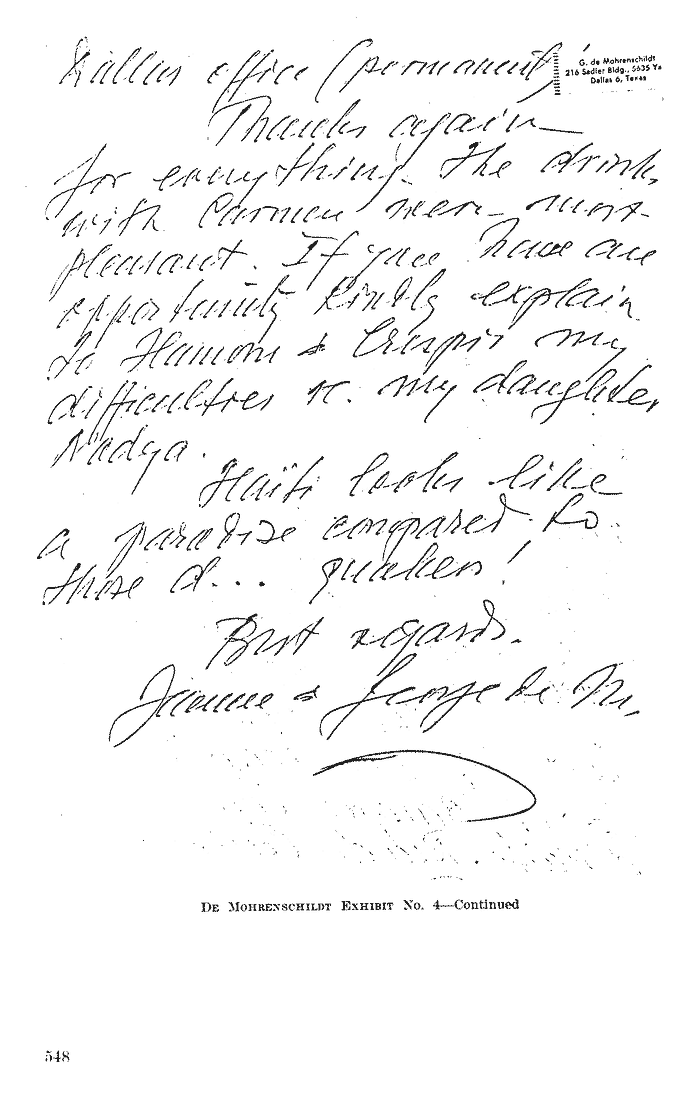 Dallas office (permanent)
G. de Mohrenschildt
216 Sadler Bldg., 5635 Ya
Dallas 6, Texas
Thanks again
for everything. The drinks
with Carmen were most
pleasant. If you have an
opportunity kindly explain
to & Crespi my
difficulties re. my daughter
Nadya.
Haïti looks like
a paradise compared to
those d... quakers!
Best regards.
Jeanne & George de M.
De Mohrenschildt Exhibit No. 4—Continued
548